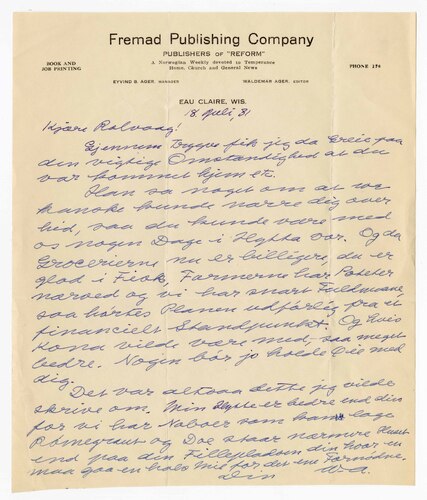 Fremad Publishing Company
PUBLISHERS OF "REFORM"
A Norwegian Weekly devoted to Temperance
Home, Church and General News
BOOK AND
JOB PRINTING
PHONE 174
EYVIND B. AGER, MANAGER
WALDEMAR AGER, EDITOR
EAU CLAIRE, WIS.
18 Juli, 31
Kjære Rølvaag!
Gjennem Brygge fik jeg da Greie paa
den vigtige Omstændighed at du
var kommet hjem etc.
Han sa noget om at vi
kanske kunde narre dig over
hid, saa du kunde være med
os nogen Dage i Hytta vor. Og da
Grocerierne nu er billigere, du er
glad i Fisk, Farmerne har Poteter
narved og vi har snart Fuldmaane
saa høres Planen udførlig fra et
financielt Standpunkt. Og hvis
Kona vilde være med - saa meget
bedre. Nogen bør jo holde Øie med
dig.
Det var altsaa dette jeg vilde
skrive om. Min Hytte er bedre end din
for vi har Naboer som kan lage
Rømegrøut og Doe staar nærmere Huset
end paa din Filleplads hvor en
maa gaa en halv Mil for det ene Fornødne.
Din W.A.